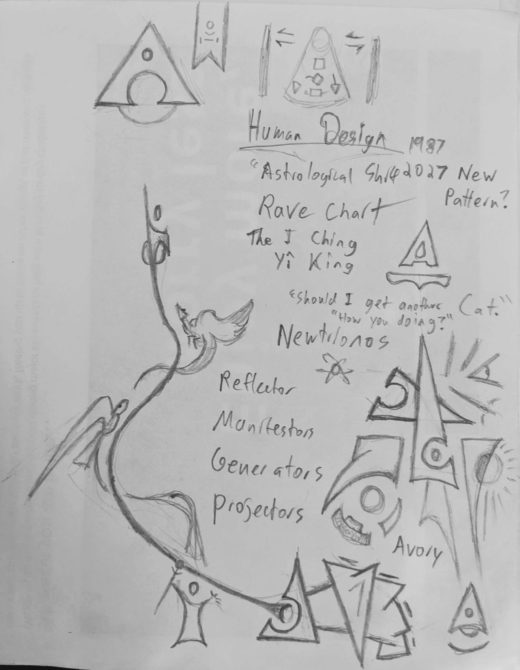 Human Design 1987
"Astrological Shift 2027 New
Pattern?
Rave Chart
The I Ching
Yî King
"Should I get another Cat."
"How you doing?"
Newtrlonos
Reflector
Manifestors
Generators
Projectors
Avory